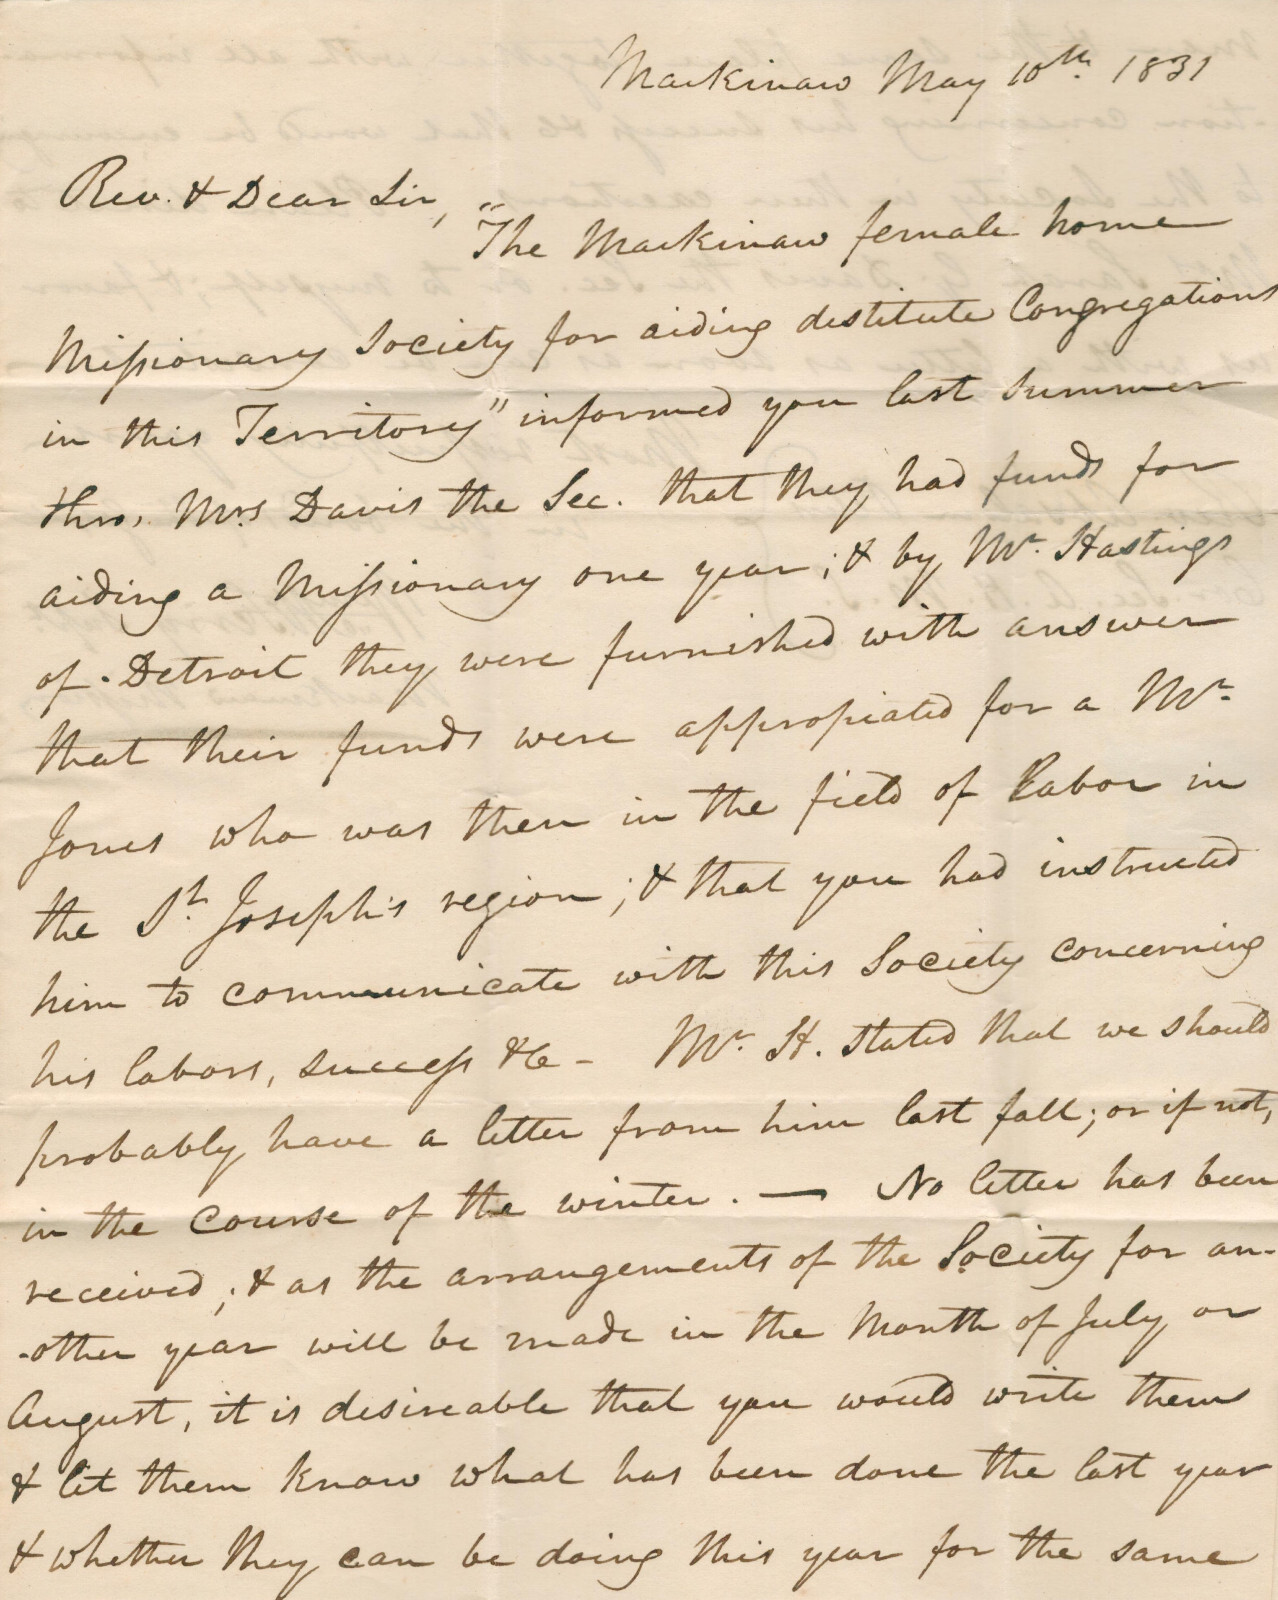 Mackinaw May 10th. 1831
Rev. & Dear Sir,
"The Mackinaw female home
Missionary Society for aiding destitute Congregations
in this Territory" informed you last summer
thro. Mrs Davis the Sec. that they had funds for
aiding a Missionary one year; & by Mr. Hastings
of Detroit they were furnished with answer
that their funds were appropiated for a Mr.
Jones who was then in the field of Labor in
the St. Joseph's region; & that you had instructed
him to communicate with this Society concerning
his labors, success &c - Mr. H. stated that we should
probably have a letter from him last fall; or if not,
in the course of the winter. — No letter has been
received; & as the arrangements of the Society for an-
-other year will be made in the Month of July or
August, it is desireable that you would write them
& let them know what has been done the last year
& whether they can be doing this year for the same